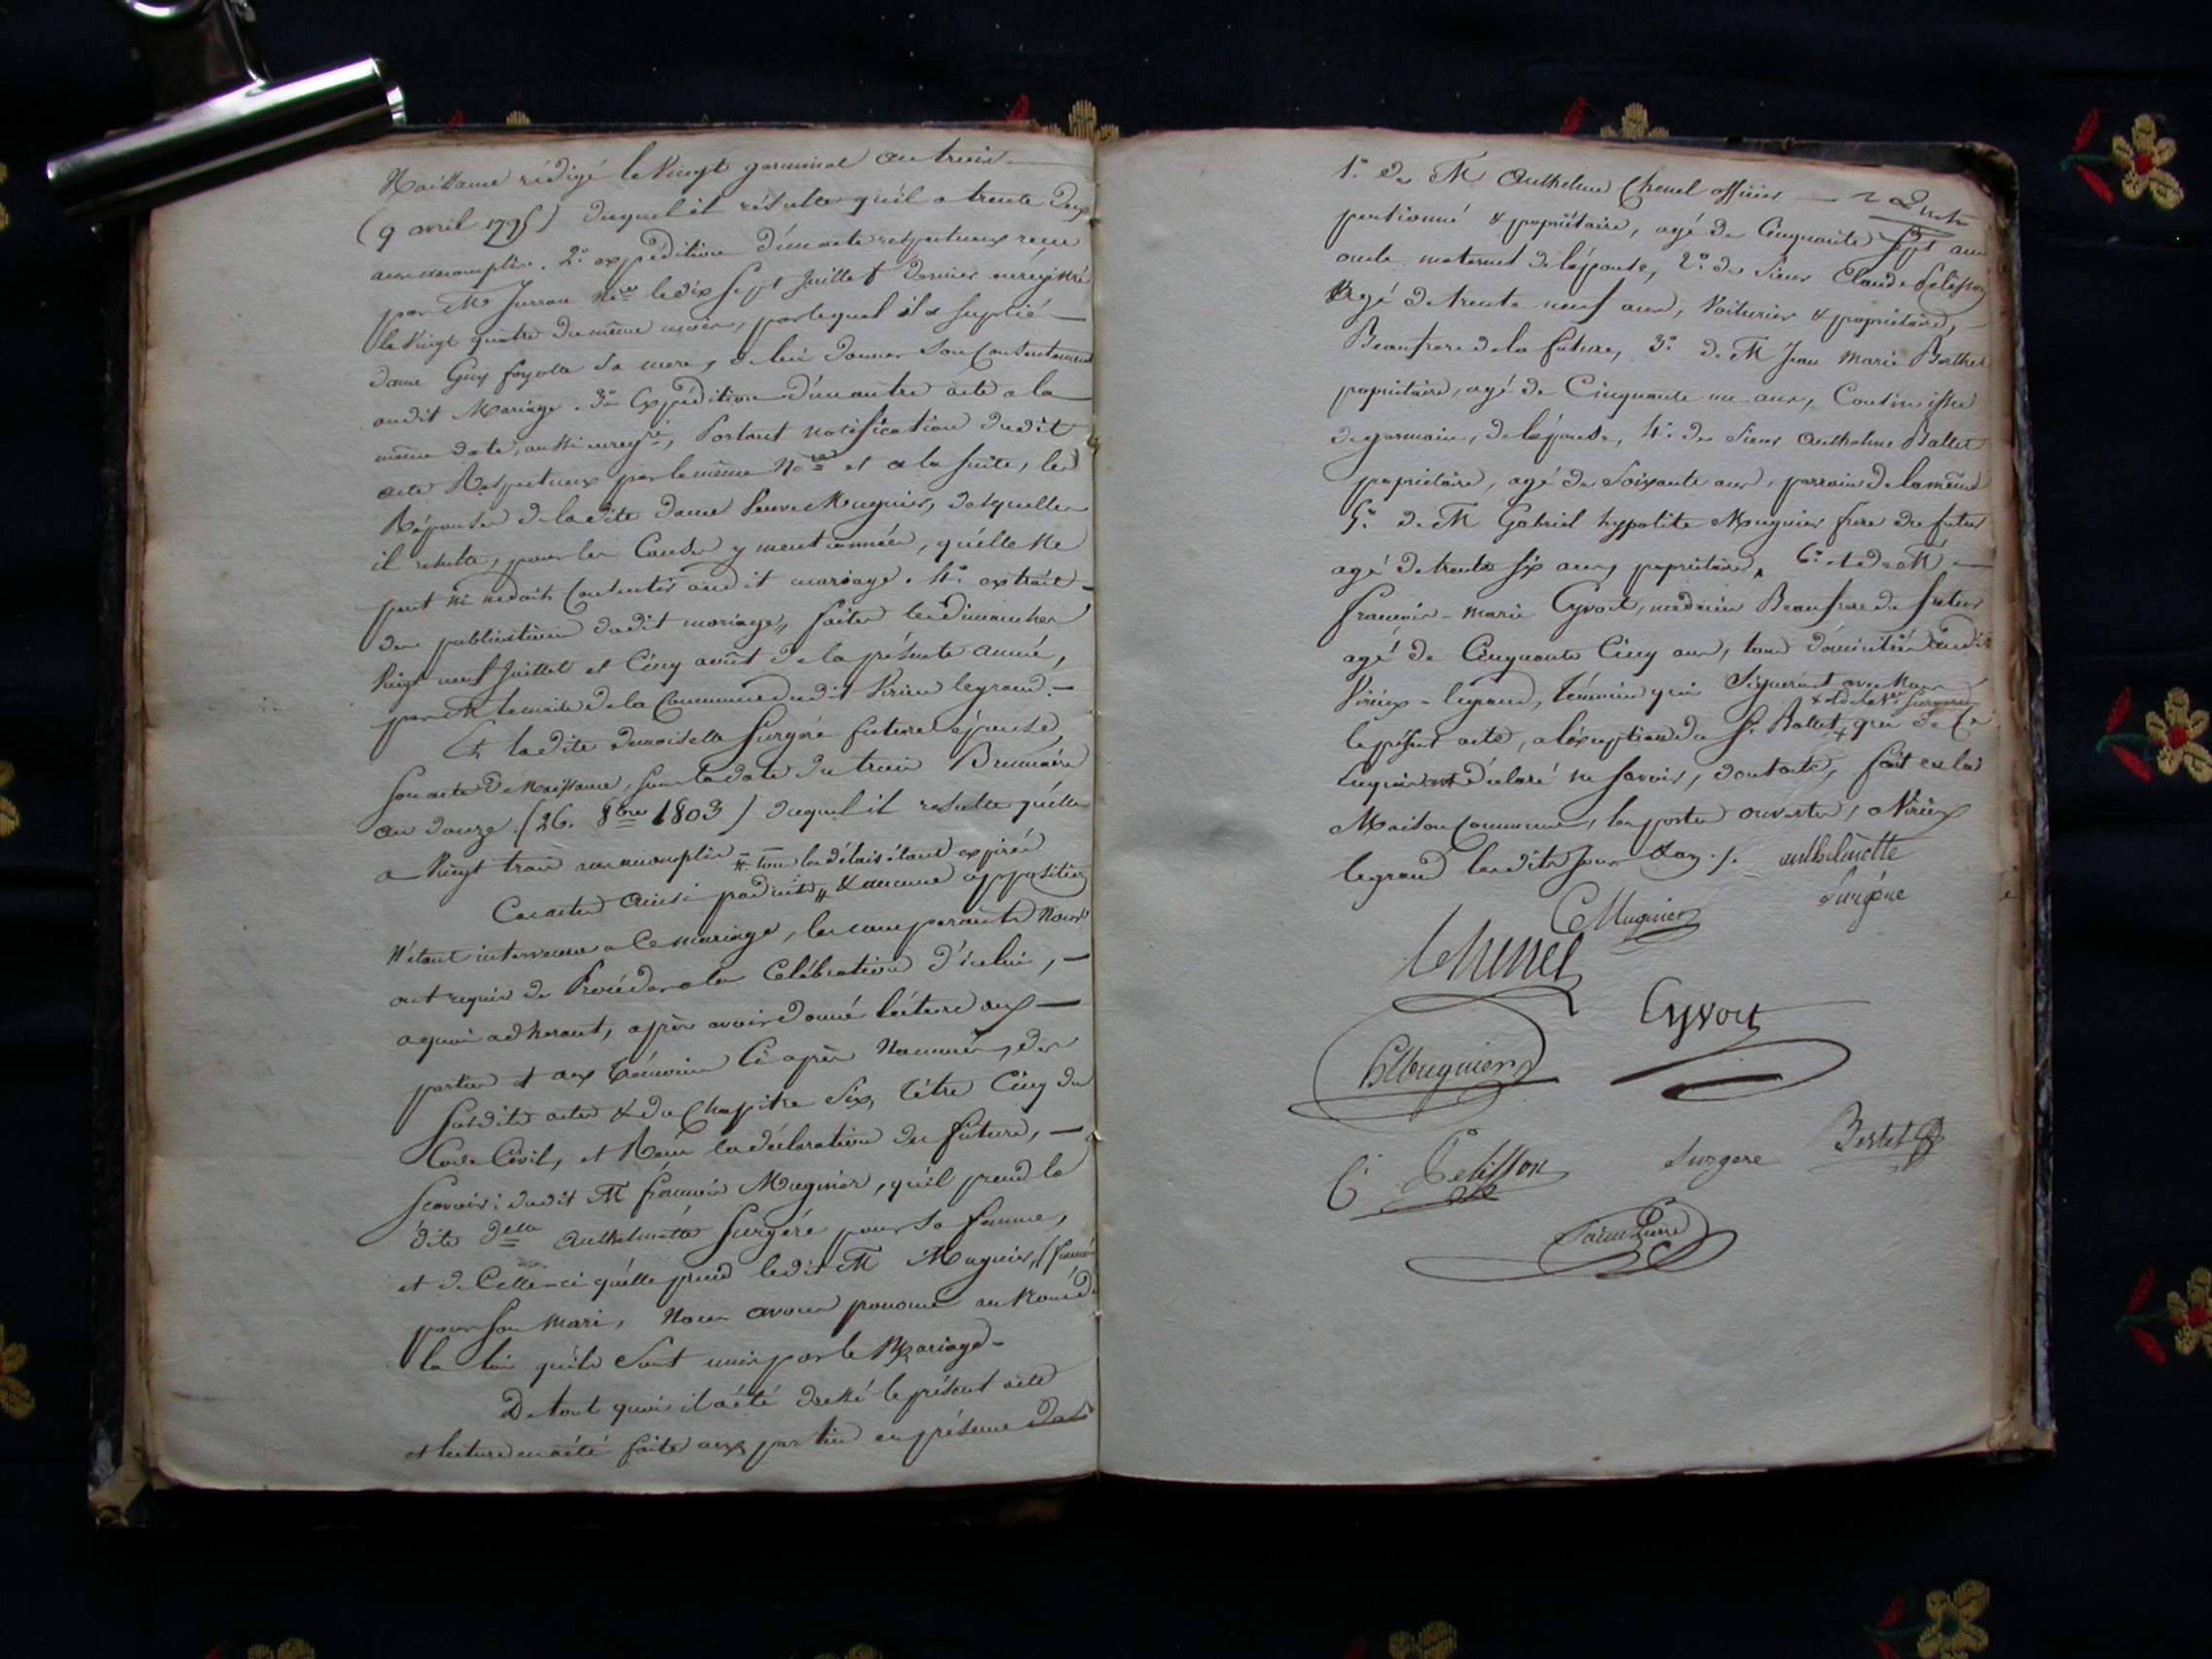 Naissance rédigé le vingt germinal an trois
(9 avril 1795) duquel il résulte qu'il a trente deux
ans accomplis. 2º expédition d'un acte respectueux reçu
par Mº Nre le dix sept juillet dernier enregistré
le vingt quatre du même mois, par lequel il a suplié
dame Guy fayolle sa mere, de lui donner son consentement
audit Mariage. 3º Expédition d'un autre acte a la
même date, aussi enregré, Portant notification dudit
acte Respectueux par le même Nre et a la suite, les
Réponses de la dite dame veuve Mugnier, desquelles
il resulte, pour les Causes y mentionnées, qu'elle ne
peut ni ne doit Consentir audit mariage. 4º extrait
des publications dudit mariage, faites les dimanches
vingt neuf Juillet et Cinq août de la présente année,
par M le maire de la Commune dudit Virieu legrand.
Et la dite demoiselle Surgére future épouse,
son acte de Naissance, sous la date du trois Brumaire
an douze (26. 8bre 1803) duquel il resulte qu'elle
a vingt trois ans accomplis
# tous les délais étant expirés
Ces actes ainsi produits # & aucune opposition
N'étant intervenue a Ce mariage, les comparants nous
ont requis de Procéder a la Célébration d'icelui,
a quoi adherant, après avoir donné lecture aux
parties et aux témoins Ci après Nommés, des
susdits actes & du Chapitre Six, titre Cinq du
Code Civil, et Reçu la déclaration des futurs,
Scavoir: dudit M françois Mugnier, qu'il prend la
dite Delle Anthelmette Surgére pour sa femme,
et de Celle-ci qu'elle prend ledit M Mugnier, (françois
pour son mari, Nous avons prononcé au Nom de
la loi qu'ils sont unis par le Mariage
De tout quoi il a été dressé le présent acte
et lecture en a été faite aux parties en présence des
1º de M Anthelme Chenel officier
pentionné & propriétaire, agé de Cinquante sept ans
oncle maternel de l'épouse, 2º du Sieur Claude Pelisson
agé de trente neuf ans, Voiturier & propriétaire,
Beaufrere de la future, 3º de M Jean Marie Berthet
propriétaire, agé de Cinquante un ans, Cousin issu
de germain, de l'épouse, 4º du Sieur Anthelme Ballet
propriétaire, agé de Soixante ans, parrain de la même
5º de M Gabriel hypolite Mugnier frere du futur
agé de trente six ans, propriétaire, 6º et de M
françois-marie Cyvoct, médecin Beaufrere du futur
agé de Cinquante Cinq ans, tous domiciliés audit
Virieux-legrand, témoins qui Signeront avec Nous
le présent acte, a l'exception du Sr. Ballet, qui de Ce
Enquis ont déclaré ne savoir, dont acte, fait en la
Maison Commune, les portes ouvertes, a Virieux
legrand les dits Jour & an ./. anthelmette
Surgére
Mugnier
Chenel
Cyvoct
H Mugnier
C Pelisson
Surgere
Bertet